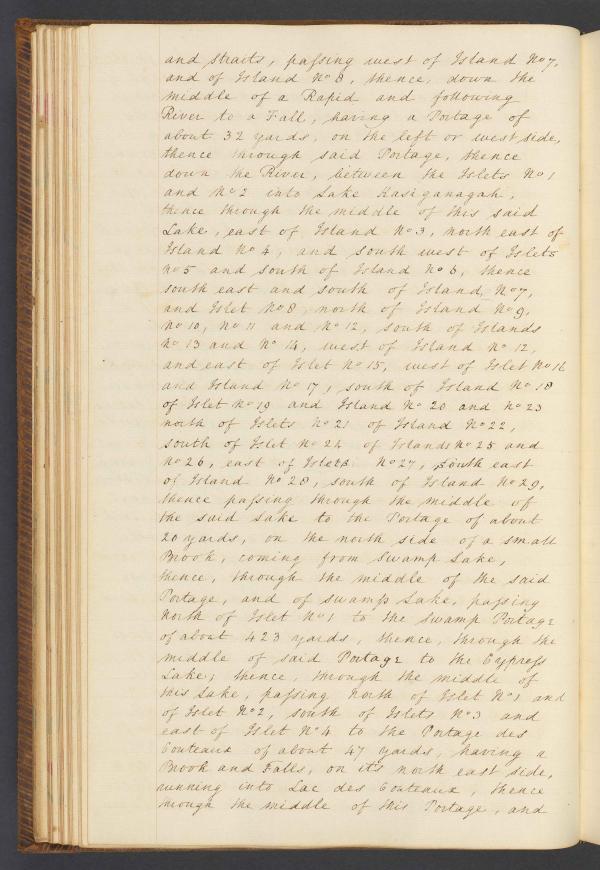 and straits, passing west of Island No 7,
and of Island No 8, thence, down the
middle of a Rapid and following
River to a Fall, having a Portage of
about 32 yards, on the left or west side,
thence through said Portage, thence
down the River, between the Islets No 1
and No 2 into Lake Kasiganagah,
thence through the middle of this said
Lake, east of Island No 3, north east of
Island No 4, and south west of Islets
No 5 and south of Island No 6, thence
south east and south of Island, No 7,
and Islet No 8, north of Island No 9,
No 10, No 11 and No 12, south of Islands
No 13 and No 14, west of Island No 12,
and east of Islet No 15, west of Islet No 16
and Island No 17, south of Island No 18
of Islet No 19 and Island No 20 and No 23
north of Islets No 21 of Island No 22,
south of Islet No 24 of Islands No 25 and
No 26, east of Islets No 27, south east
of Island No 28, south of Island No 29,
thence passing through the middle of
the said Lake to the Portage of about
20 yards, on the north side of a small
Brook, coming from Swamp Lake,
thence, through the middle of the said
Portage, and of Swamp Lake, passing
North of Islet No 1 to the Swamp Portage
of about 423 yards, thence, through the
middle of said Portage to the Cypress
Lake; thence, through the middle of
this Lake, passing North of Islet No 1 and
of Islet No 2, south of Islets No 3 and
east of Islet No 4 to the Portage des
Couteaux of about 47 yards, having a
Brook and Falls, on its north east side,
running into Lac des Couteaux, thence
through the middle of this Portage, and